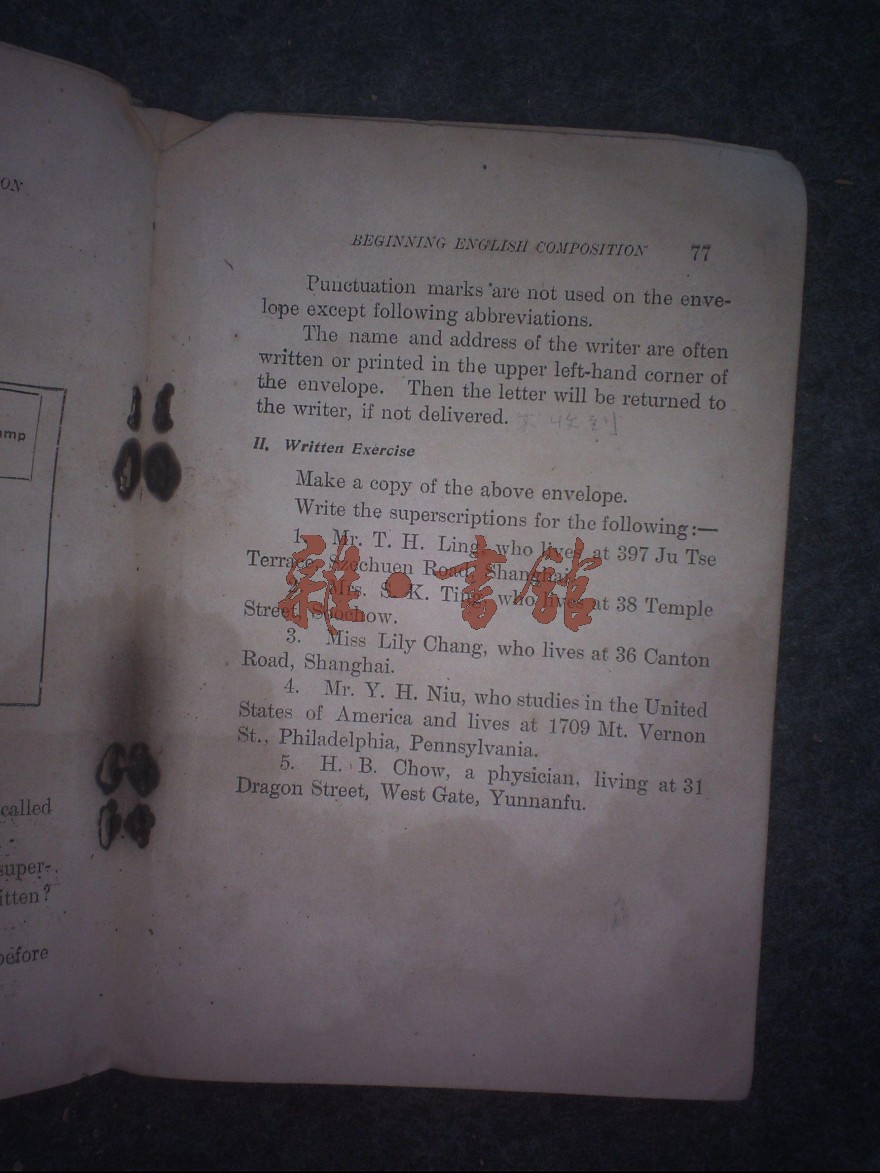 ON
amp
called
super-
itten?
before
BEGINNING ENGLISH COMPOSITION 77
Punctuation marks are not used on the enve-
lope except following abbreviations.
The name and address of the writer are often
written or printed in the upper left-hand corner of
the envelope. Then the letter will be returned to
the writer, if not delivered.
II. Written Exercise
Make a copy of the above envelope.
Write the superscriptions for the following:—
1. Mr. T. H. Ling, who lives at 397 Ju Tse
Terrace, Szechuen Road, Shanghai.
2. Mrs. S. K. Ting, who lives at 38 Temple
Street, Soochow.
3. Miss Lily Chang, who lives at 36 Canton
Road, Shanghai.
4. Mr. Y. H. Niu, who studies in the United
States of America and lives at 1709 Mt. Vernon
St., Philadelphia, Pennsylvania.
5. H. B. Chow, a physician, living at 31
Dragon Street, West Gate, Yunnanfu.
雅·書館